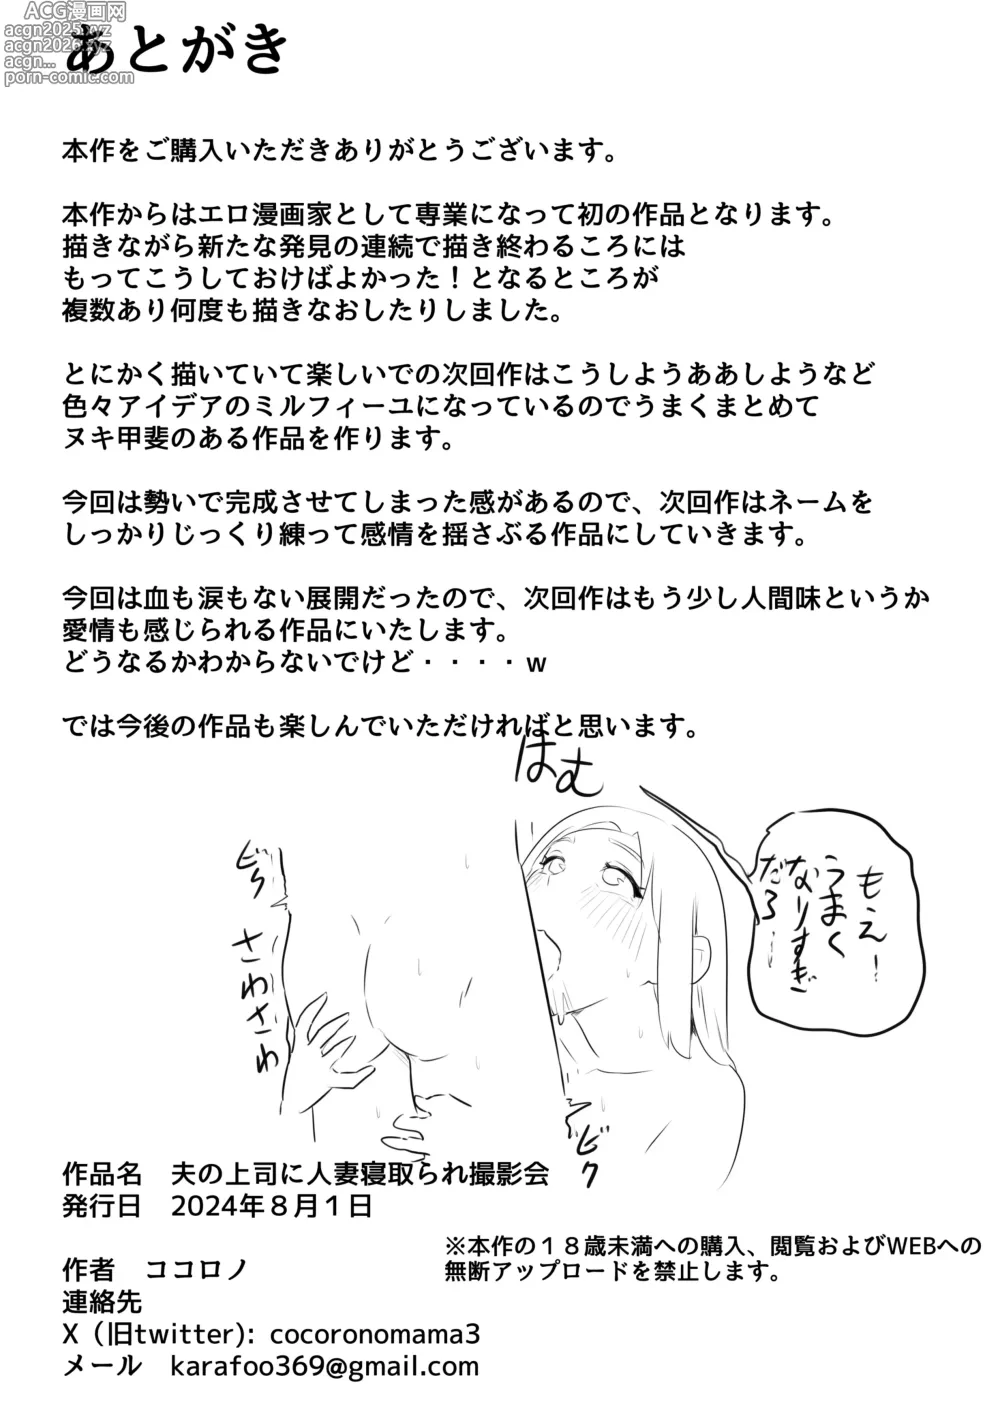 ACG漫画网
acgn2025.xyz
acgn2026.xyz
acgn...
porn-comic.com
あとがき
本作をご購入いただきありがとうございます。
本作からはエロ漫画家として専業になって初の作品となります。
描きながら新たな発見の連続で描き終わるころには
もってこうしておけばよかった！となるところが
複数あり何度も描きなおしたりしました。
とにかく描いていて楽しいでの次回作はこうしようああしようなど
色々アイデアのミルフィーユになっているのでうまくまとめて
ヌキ甲斐のある作品を作ります。
今回は勢いで完成させてしまった感があるので、次回作はネームを
しっかりじっくり練って感情を揺さぶる作品にしていきます。
今回は血も涙もない展開だったので、次回作はもう少し人間味というか
愛情も感じられる作品にいたします。
どうなるかわからないでけど・・・・w
では今後の作品も楽しんでいただければと思います。
はむ
もえー!
うまく
なりすぎ
だろー
さわさわ
ビク
作品名　夫の上司に人妻寝取られ撮影会
発行日　2024年８月１日
※本作の１８歳未満への購入、閲覧およびWEBへの
無断アップロードを禁止します。
作者　ココロノ
連絡先
X（旧twitter): cocoronomama3
メール　karafoo369@gmail.com